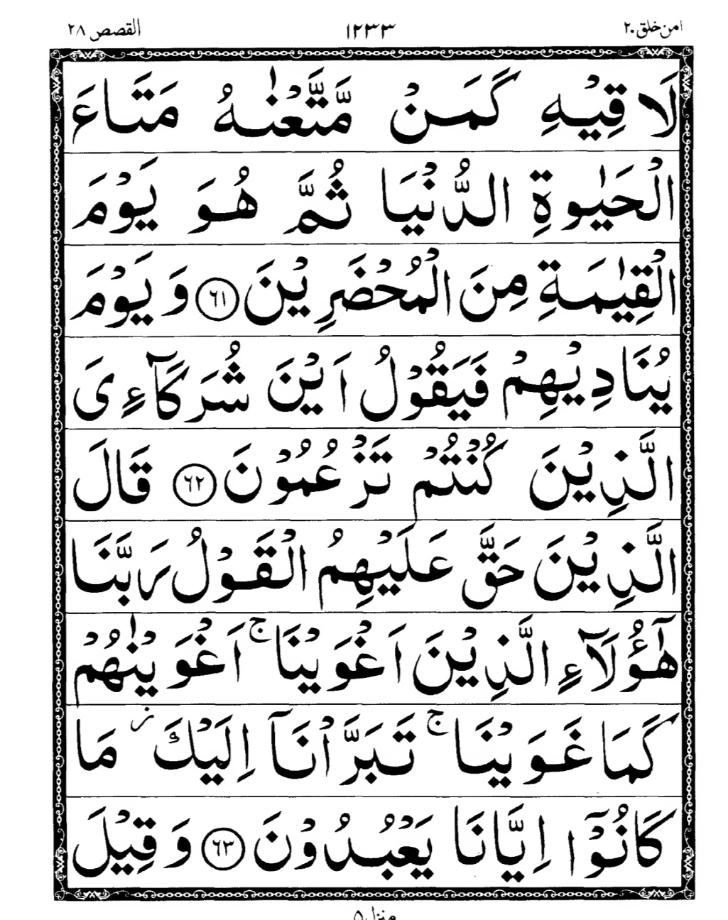 امن خلق ٢٠ ١٢٣٣ القصص ٢٨
لَا قِيْهِ كَمَنْ مَّتَّعْنٰهُ مَتَاعَ
الْحَيٰوةِ الدُّنْيَا ثُمَّ هُوَ يَوْمَ
الْقِيٰمَةِ مِنَ الْمُحْضَرِيْنَ ٦١ وَ يَوْمَ
يُنَادِيْهِمْ فَيَقُوْلُ اَيْنَ شُرَكَآءِیَ
الَّذِيْنَ كُنْتُمْ تَزْعُمُوْنَ ٦٢ قَالَ
الَّذِيْنَ حَقَّ عَلَيْهِمُ الْقَوْلُ رَبَّنَا
هٰٓؤُلَآءِ الَّذِيْنَ اَغْوَيْنَا ۚ اَغْوَيْنٰهُمْ
كَمَا غَوَيْنَا ۚ تَبَرَّاْنَاۤ اِلَيْكَ ز مَا
كَانُوْٓا اِيَّانَا يَعْبُدُوْنَ ٦٣ وَ قِيْلَ
منزل ٥